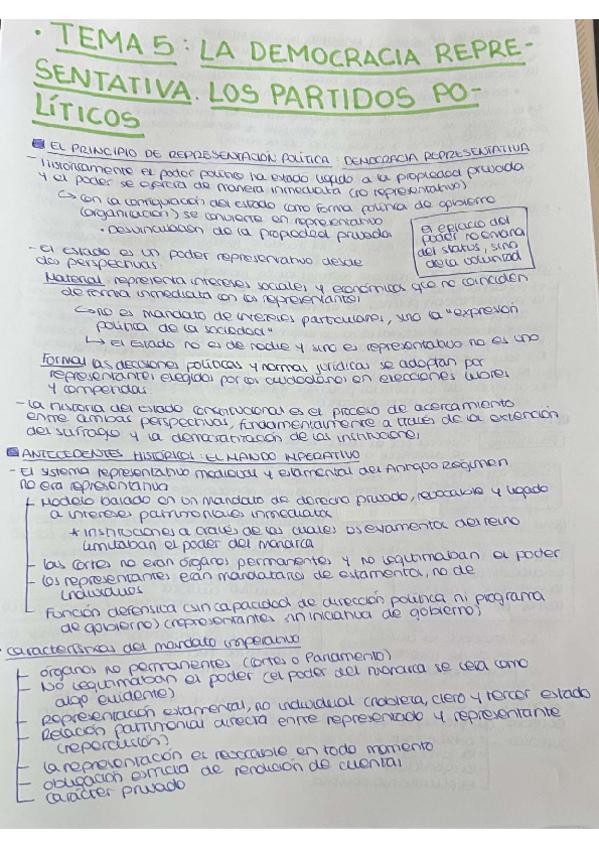 · TEMA 5: LA DEMOCRACIA REPRE-
SENTATIVA. LOS PARTIDOS PO-
LÍTICOS
EL PRINCIPIO DE REPRESENTACIÓN POLÍTICA: DEMOCRACIA REPRESENTATIVA
- Históricamente el poder político ha estado ligado a la propiedad privada
y el poder se ejercía de manera inmediata (no representativo)
↳ con la configuración del estado como forma política de gobierno
(organización) se convierte en representativo
• desvinculación de la propiedad privada
el ejercicio del
poder no emana
del status, sino
de la voluntad
- El estado es un poder representativo desde
dos perspectivas:
Material: representa intereses sociales y económicos que no coinciden
de forma inmediata con los representantes
↳ no es mandato de intereses particulares, sino la "expresión
política de la sociedad"
↳ el estado no es de nadie y si no es representativo no es uno
Formal: las decisiones políticas y normas jurídicas se adoptan por
representantes elegidos por los ciudadanos en elecciones libres
y competidas
- La historia del estado constitucional es el proceso de acercamiento
entre ambas perspectivas, fundamentalmente a través de la extensión
del sufragio y la democratización de las instituciones
ANTECEDENTES HISTÓRICOS: EL MANDO IMPERATIVO
- El sistema representativo medieval y estamental del Antiguo Régimen
no era representativo
Modelo basado en un mandato de derecho privado, revocable y ligado
a intereses patrimoniales inmediatos
* Instituciones a través de las cuales los estamentos del reino
limitaban el poder del monarca
Las cortes no eran órganos permanentes y no legitimaban el poder
Los representantes eran mandatarios de estamentos, no de
individuos
Función defensiva sin capacidad de dirección política ni programa
de gobierno) (representantes sin iniciativa de gobierno)
· características del mandato imperativo
órganos no permanentes (Cortes o Parlamento)
No legitimaban el poder (el poder del monarca se veía como
algo evidente)
Representación estamental, no individual (nobleza, clero y tercer estado
Relación patrimonial directa entre representado y representante
(repercusión)
la representación es revocable en todo momento
obligación estricta de rendición de cuentas
carácter privado